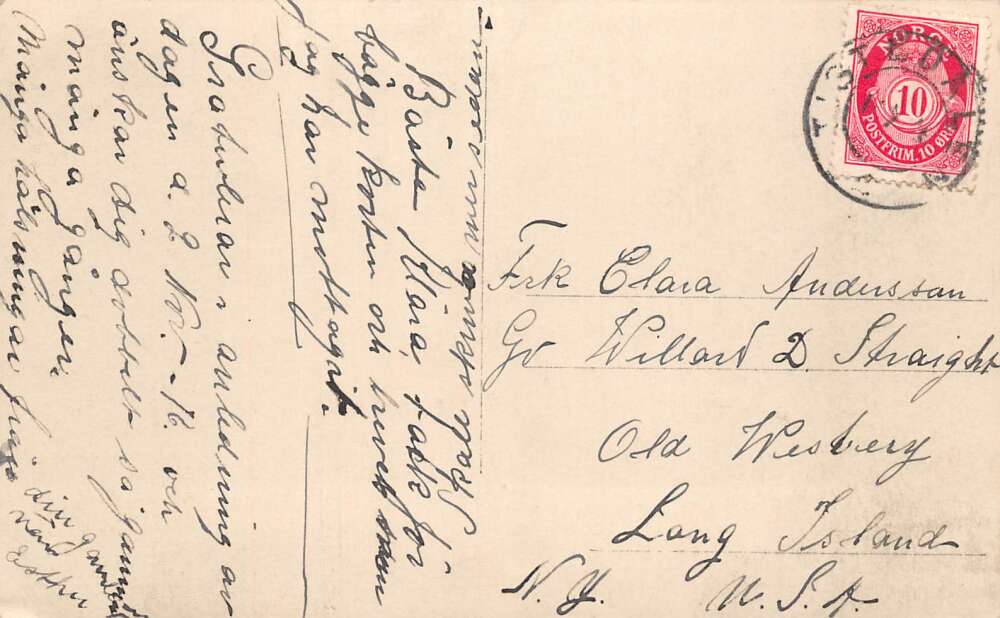 Bäste Klara, tack för
bägge korten och brevet som
jag har mottagit.
Gratulerar i anledning av
dagen d. 2 Nv. - 16. och
önskar dig dobbelt så
många gånger.
Många hälsningar från
din
vän
Esther
NORGE
10
POSTFRIM. 10 ØRE
Frk Clara Andersson
Gv Willard D. Straight
Old Wesbery
Long Island
N. Y. U. S. A.